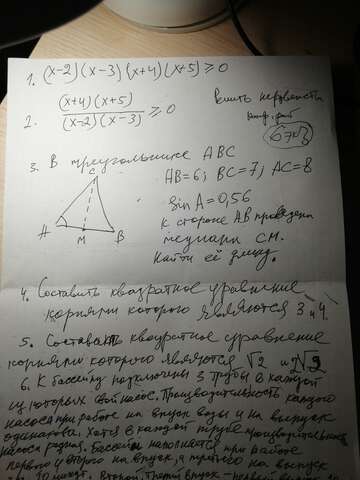 1. (x-2)(x-3)(x+4)(x+5) ⩾ 0
2. (x+4)(x+5) / (x-2)(x-3) ⩾ 0
Решить неравенства
3. В треугольнике ABC
AB=6; BC=7; AC=8
sin A = 0,56
к стороне AB проведена
медиана CM.
Найти её длину.
C
A
M
B
4. Составить квадратное уравнение
корнями которого являются 3 и 4
5. Составить квадратное уравнение
корнями которого являются √2 и 2√2
6. К бассейну подключены 3 трубы в каждой
из которых свой насос. Производительность каждого
насоса при работе на впуск воды и на выпуск
одинакова. Хотя в каждой трубе производительность
насоса разная. Бассейн наполнится при работе
первого и второго на впуск, а третьего на выпуск
за 30 минут. Второй, третий впуск - первый